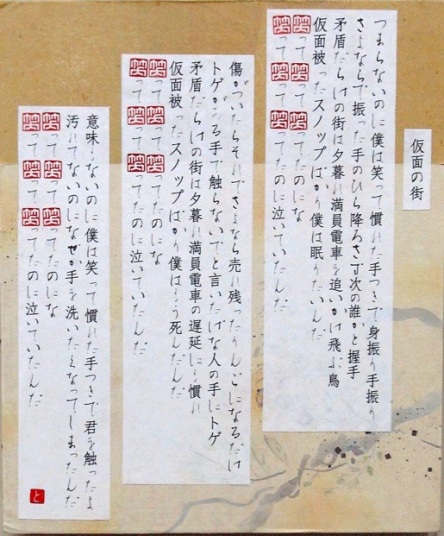 仮面の街
つまらないのに僕は笑って慣れた手つきで身振り手振り
さよならで振った手のひら降ろさず次の誰かと握手
矛盾だらけの街は夕暮れ満員電車を追いかけ飛ぶ鳥
仮面被ったスノップばかり僕は眠りたいんだ
笑って笑って笑ってたのにな
笑って笑って笑ってたのに泣いていたんだ
傷がついたらそれでさよなら売れ残ったりんごになるだけ
トゲがある手で触らないでと言いたげな人の手にトゲ
矛盾だらけの街は夕暮れ満員電車の遅延にも慣れ
仮面被ったスノップばかり僕はもう死んだんだ
笑って笑って笑ってたのにな
笑って笑って笑ってたのに泣いていたんだ
意味もないのに僕は笑って慣れた手つきで君を触ったよ
汚れてないのになぜか手を洗いたくなってしまったんだ
笑って笑って笑ってたのにな
笑って笑って笑ってたのに泣いていたんだ
と